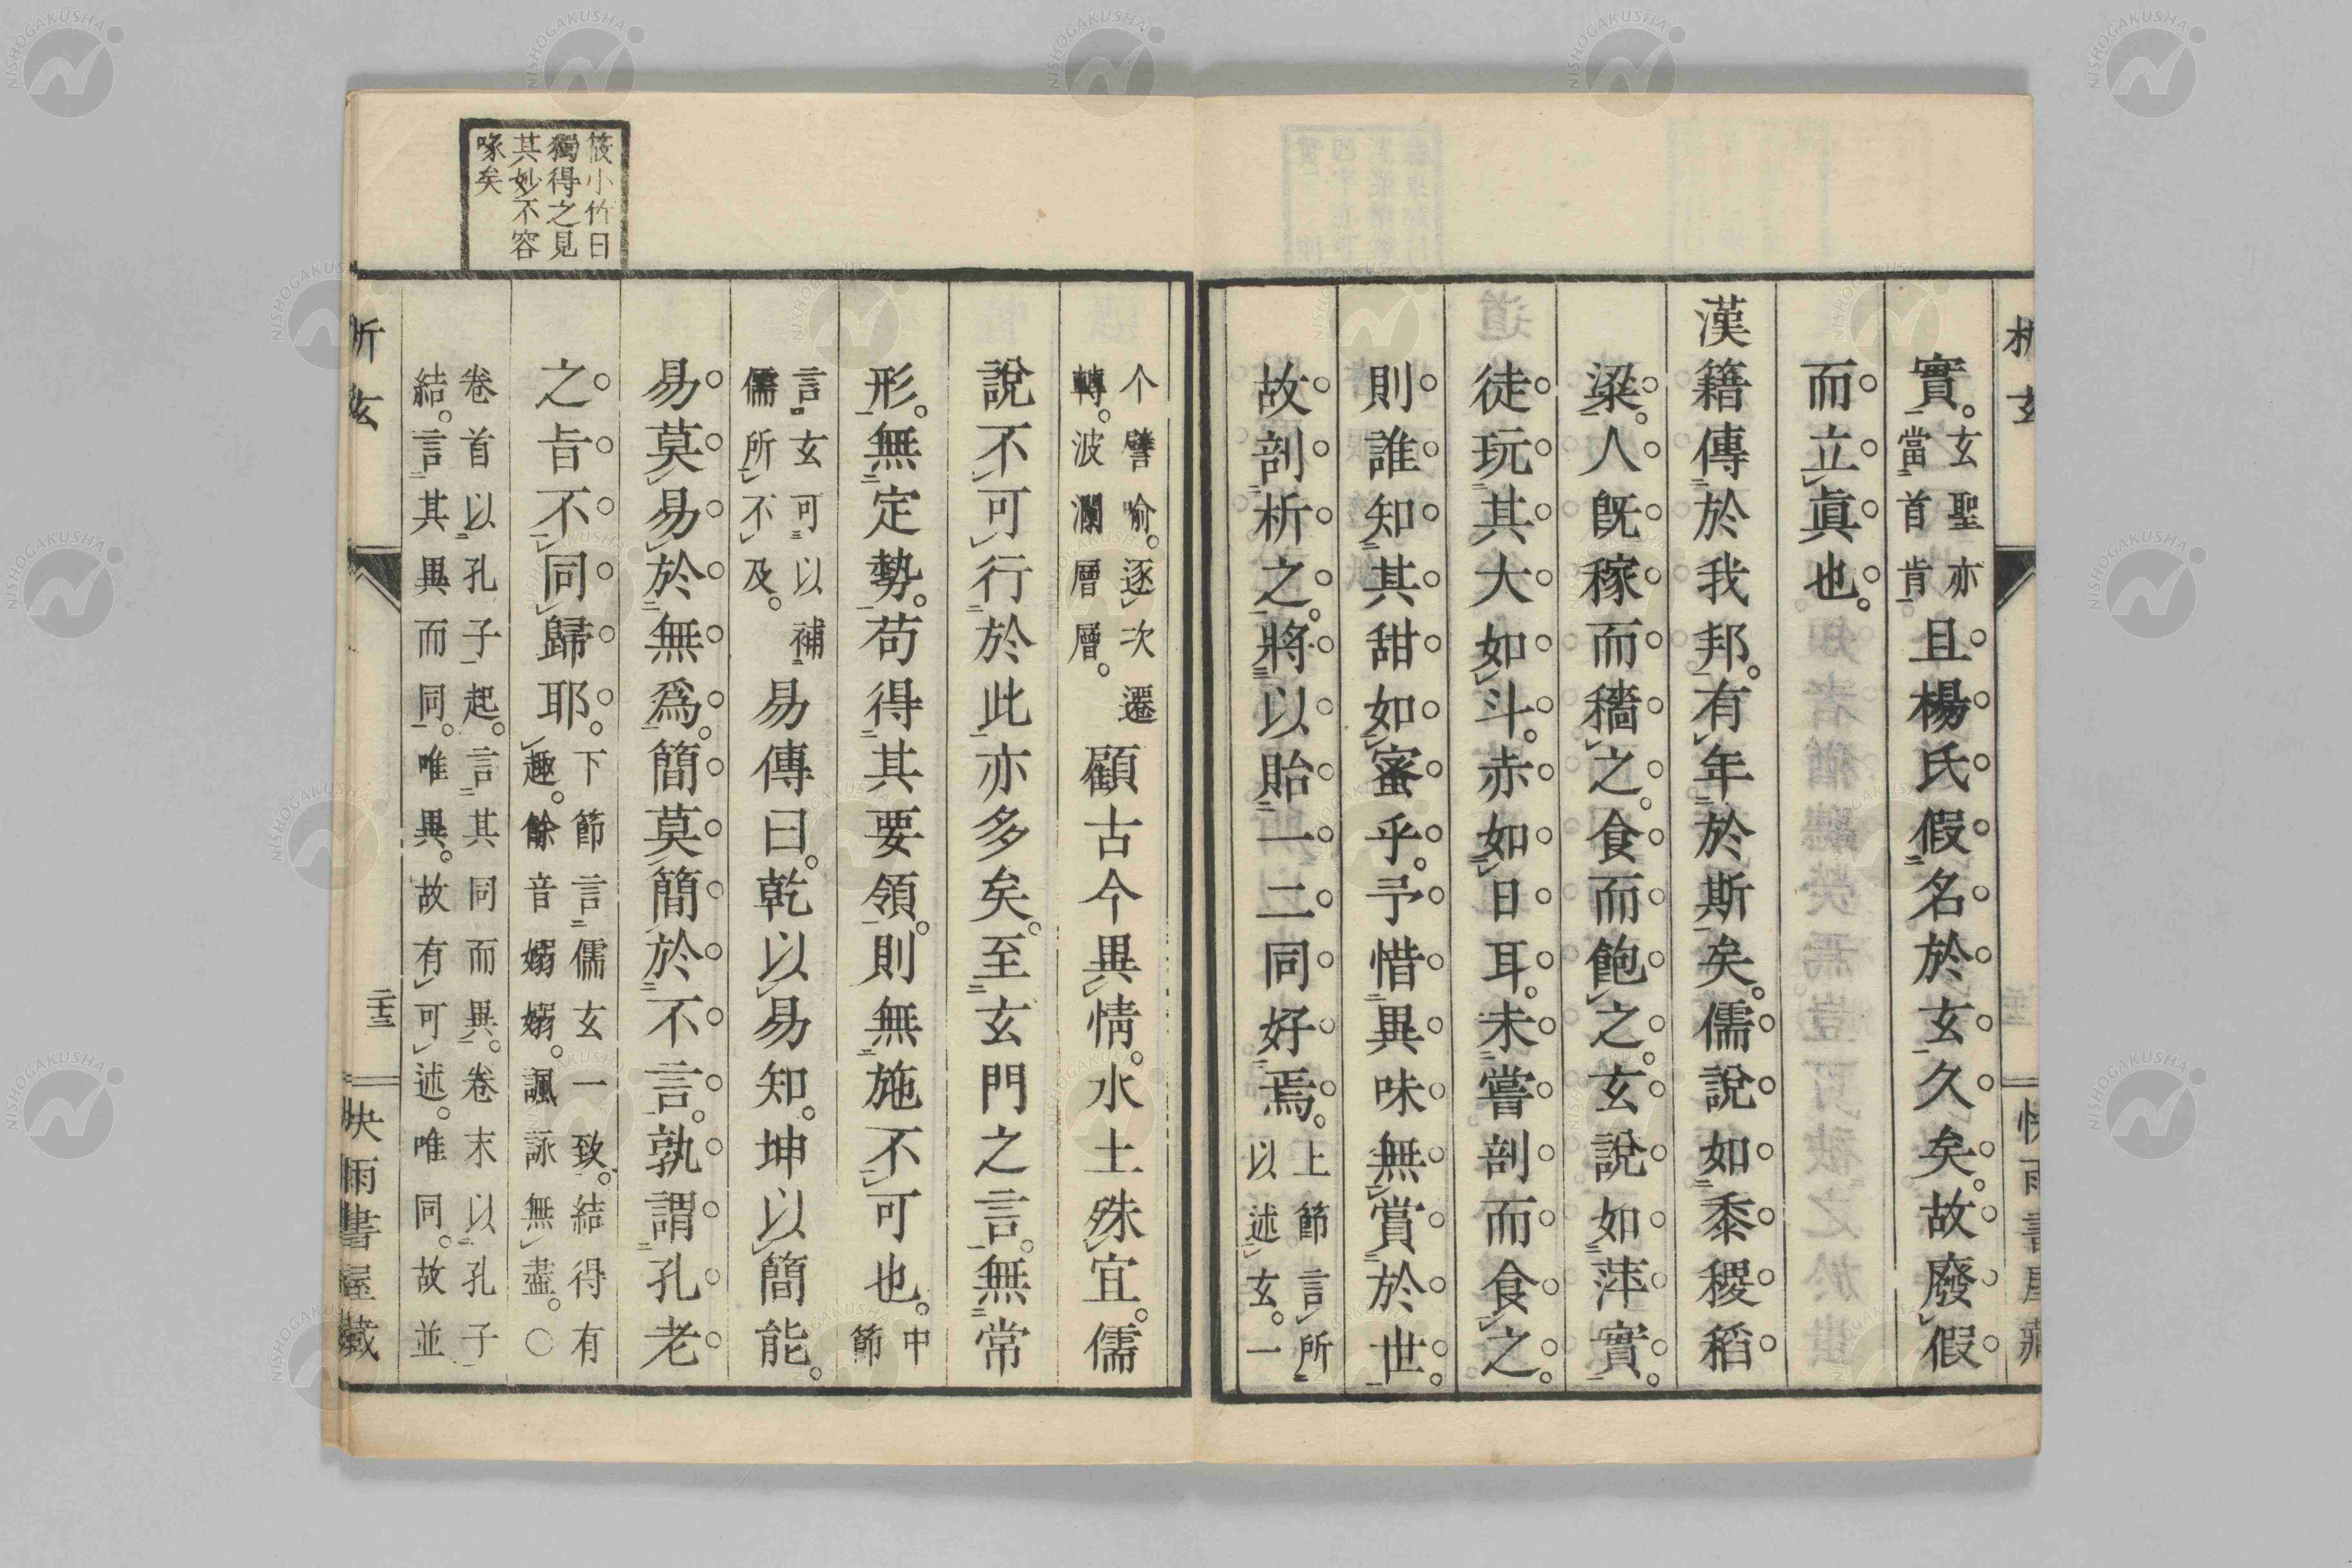 實。玄聖亦當首肯。且楊氏假名於玄久矣。故廢假
而立眞也。
漢籍傳於我邦。有年於斯矣。儒說如黍稷稻
粱。人既稼而穡之。食而飽之。玄說如萍實。
徒玩其大如斗。赤如日耳。未嘗剖而食之。
則誰知其甜如蜜乎。予惜異味無賞於世。
故剖析之。將以貽一二同好焉。上節言所以述玄。一
个譬喻。逐次遷轉。波瀾層層。顧古今異情。水土殊宜。儒
說不可行於此亦多矣。至玄門之言。無常
形。無定勢。苟得其要領。則無施不可也。中節
言玄可以補儒所不及。易傳曰。乾以易知。坤以簡能。
易莫易於無爲。簡莫簡於不言。孰謂孔老
之旨不同歸耶。下節言儒玄一致。結得有趣。餘音嫋嫋。諷詠無盡。○
卷首以孔子起。言其同而異。卷末以孔子
結。言其異而同。唯異。故有可述。唯同。故並
析玄
二十三
快雨書屋藏
筱小竹曰
獨得之見
其妙不容
喙矣
析玄
快雨書屋藏
NISHOGAKUSHA